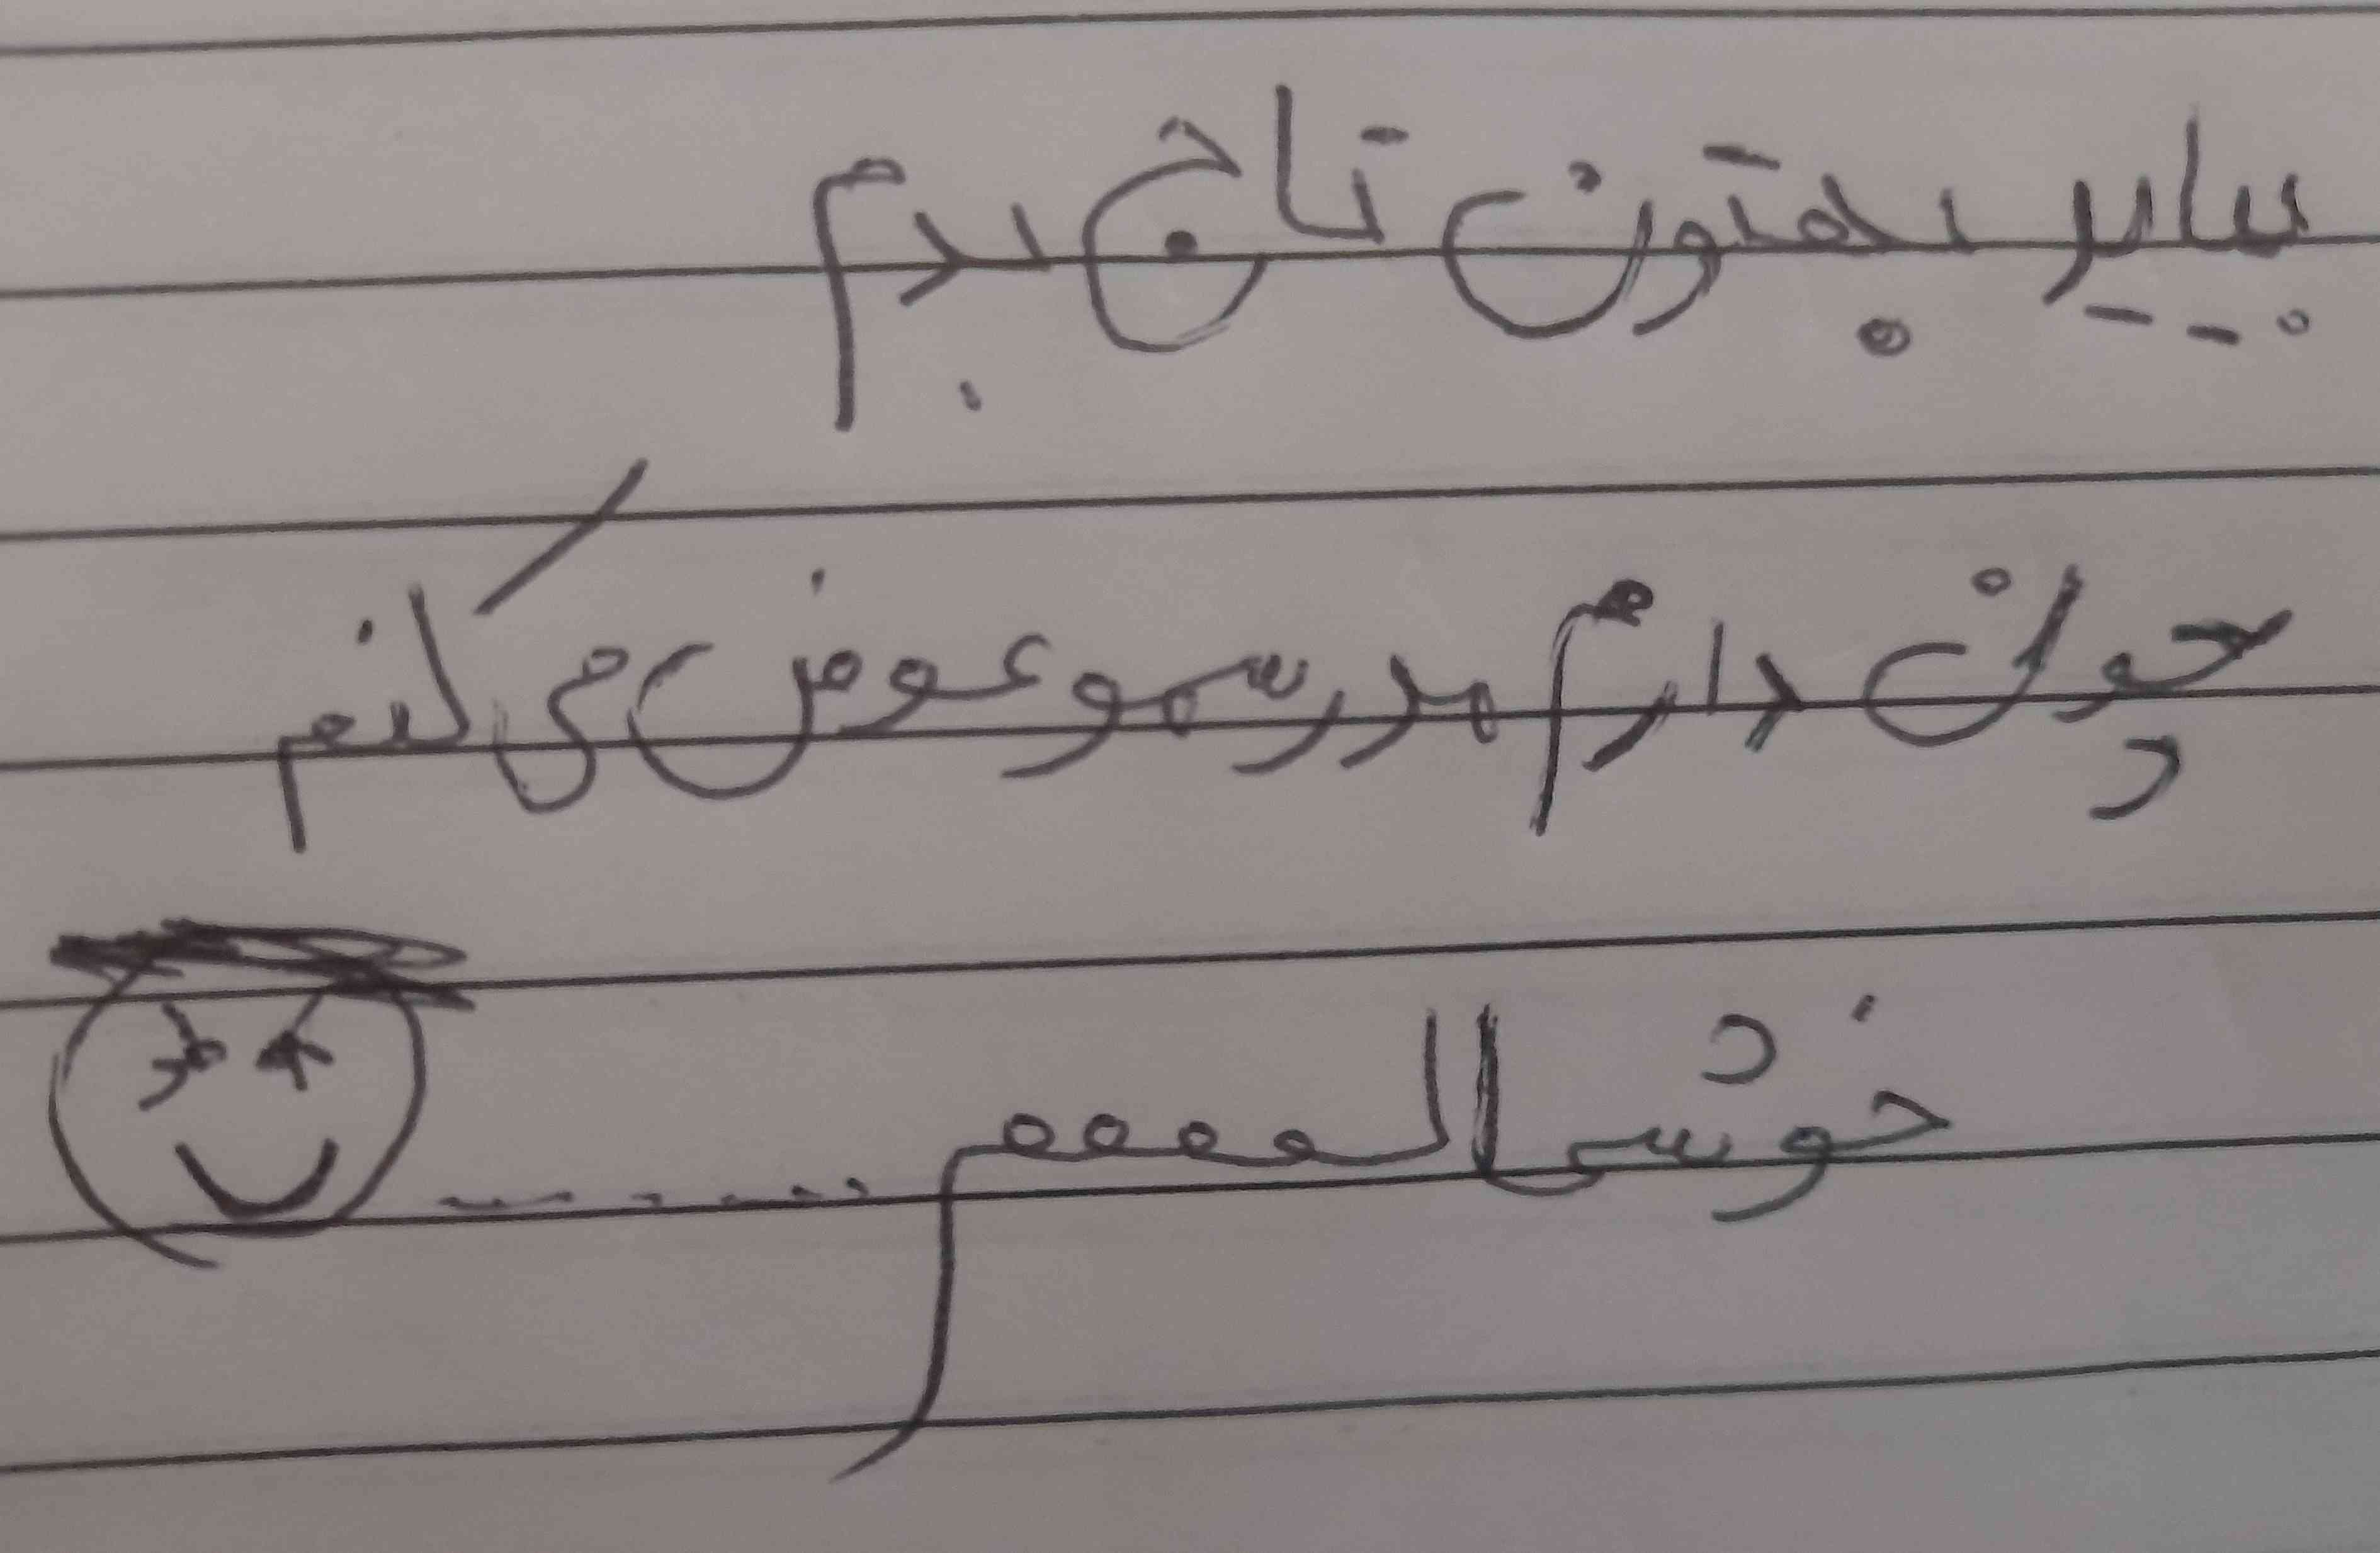 بیاید بهتون تاج بدم
چون دارم مدرسمو عوض می کنم
خوشحالممممم......